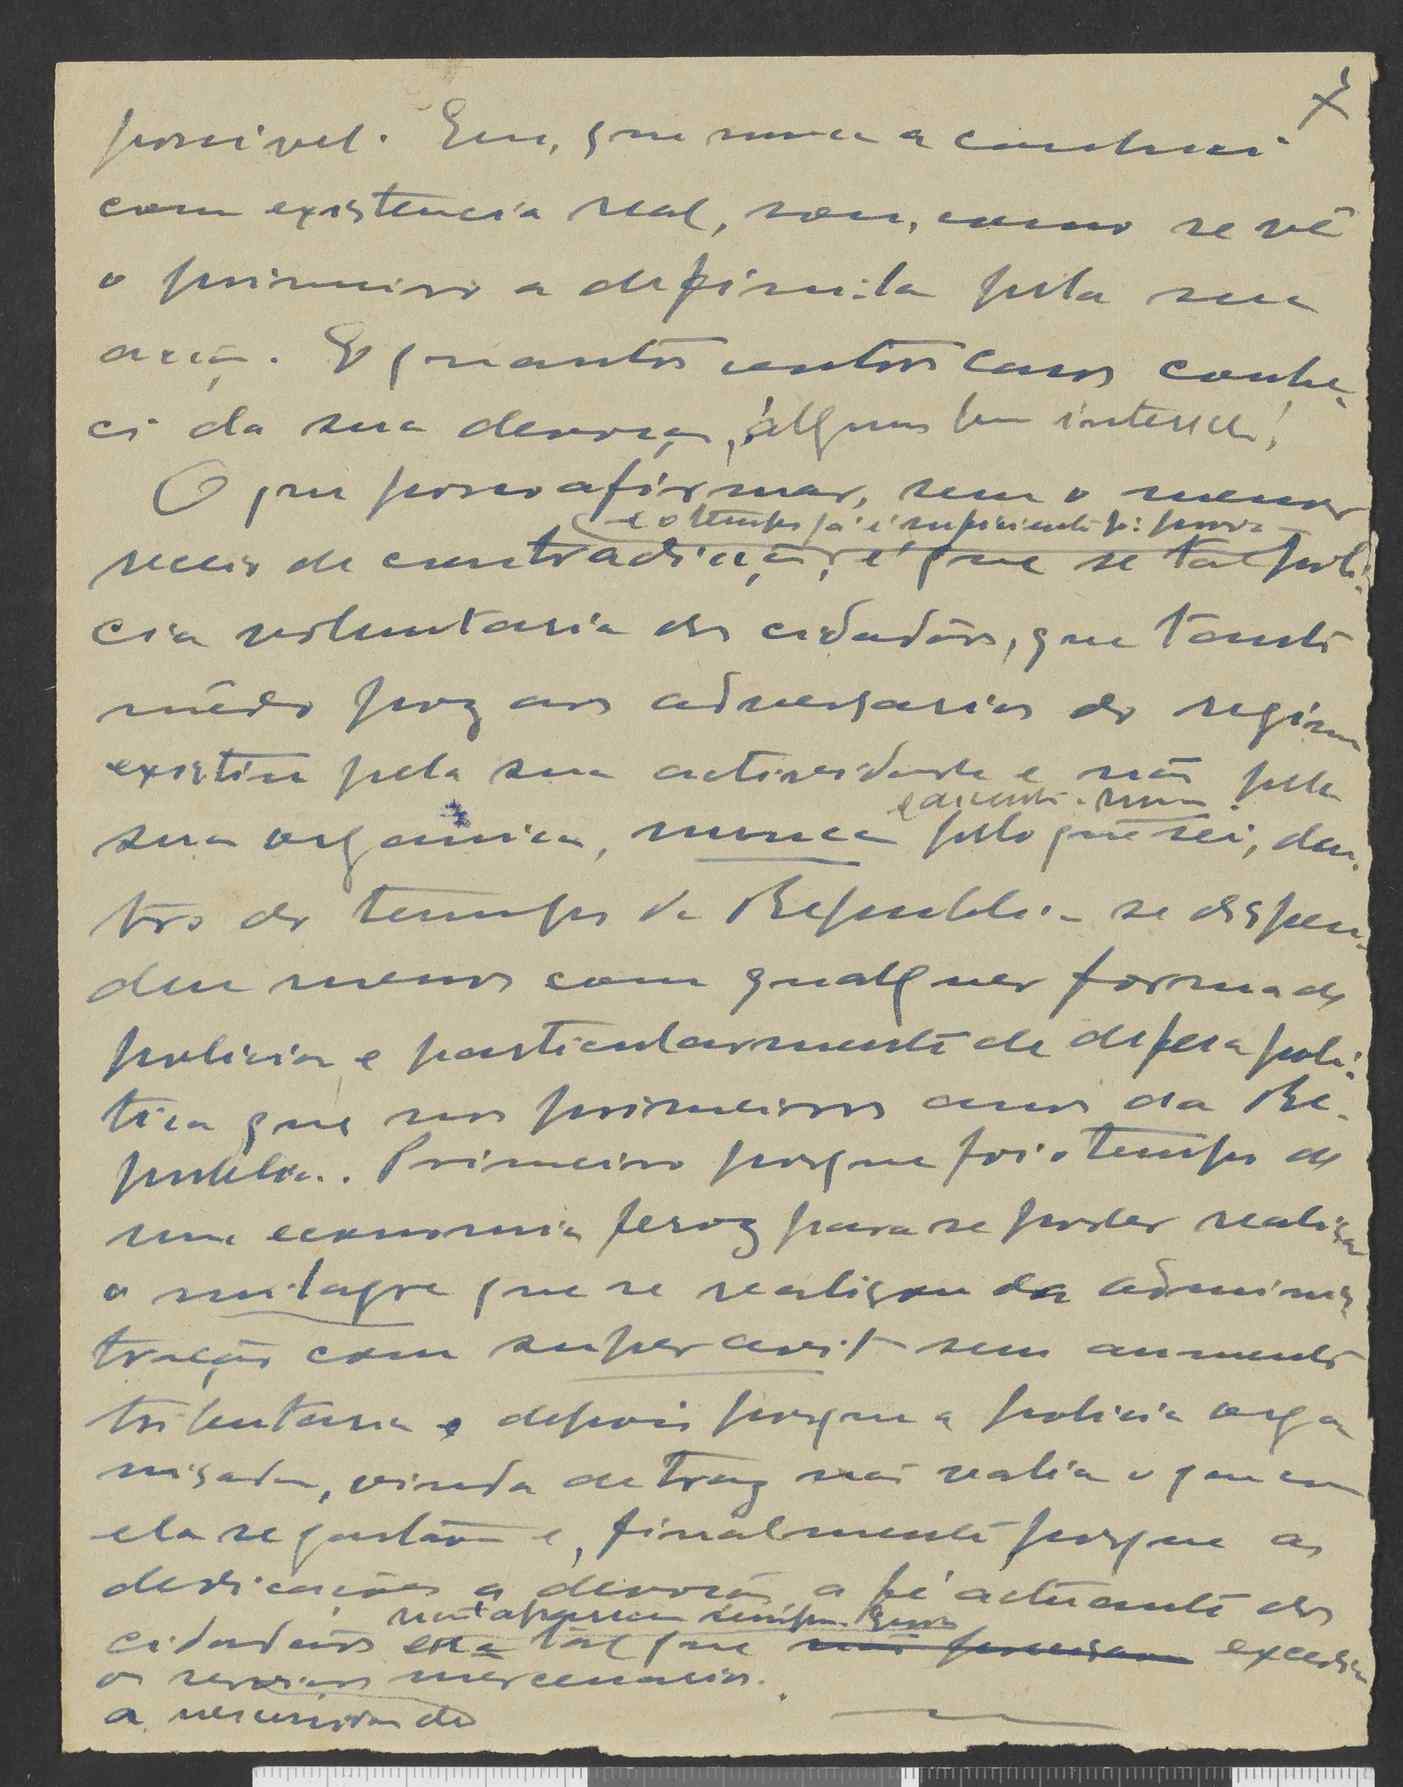 possivel. Eu, que nunca a conheci
com existencia real, sou, como se vê
o primeiro a defini-la pela sua
acção. E quantos outros casos conhe-
ci da sua devoção, alguns bem interess!
O que posso afirmar, sem o menor
e o tempo já é suficiente p:
receio de contradicção, é que se tal poli-
cia voluntaria dos cidadãos, que tanto
mêdo poz aos adversarios do regimen
existiu pela sua actividade e não pela
sua organica, nunca pelo que sei, den-
tro do tempo da Republica se dispen-
deu menos com qualquer forma de
policia e particularmente de defesa poli-
tica que nos primeiros anos da Re-
publica. Primeiro porque foi o tempo de
uma economia feroz para se poder realisar
o milagre que se realisou da adminis-
tração com superavit sem aumento
tributario e depois porque a policia orga
nisada, vinda de traz não valia o que com
ela se gastava e, finalmente porque as
dedicações a devoção a fé actuante dos
cidadãos era tal que não precisava excedia
os serviços mercenarios.
a necessidade